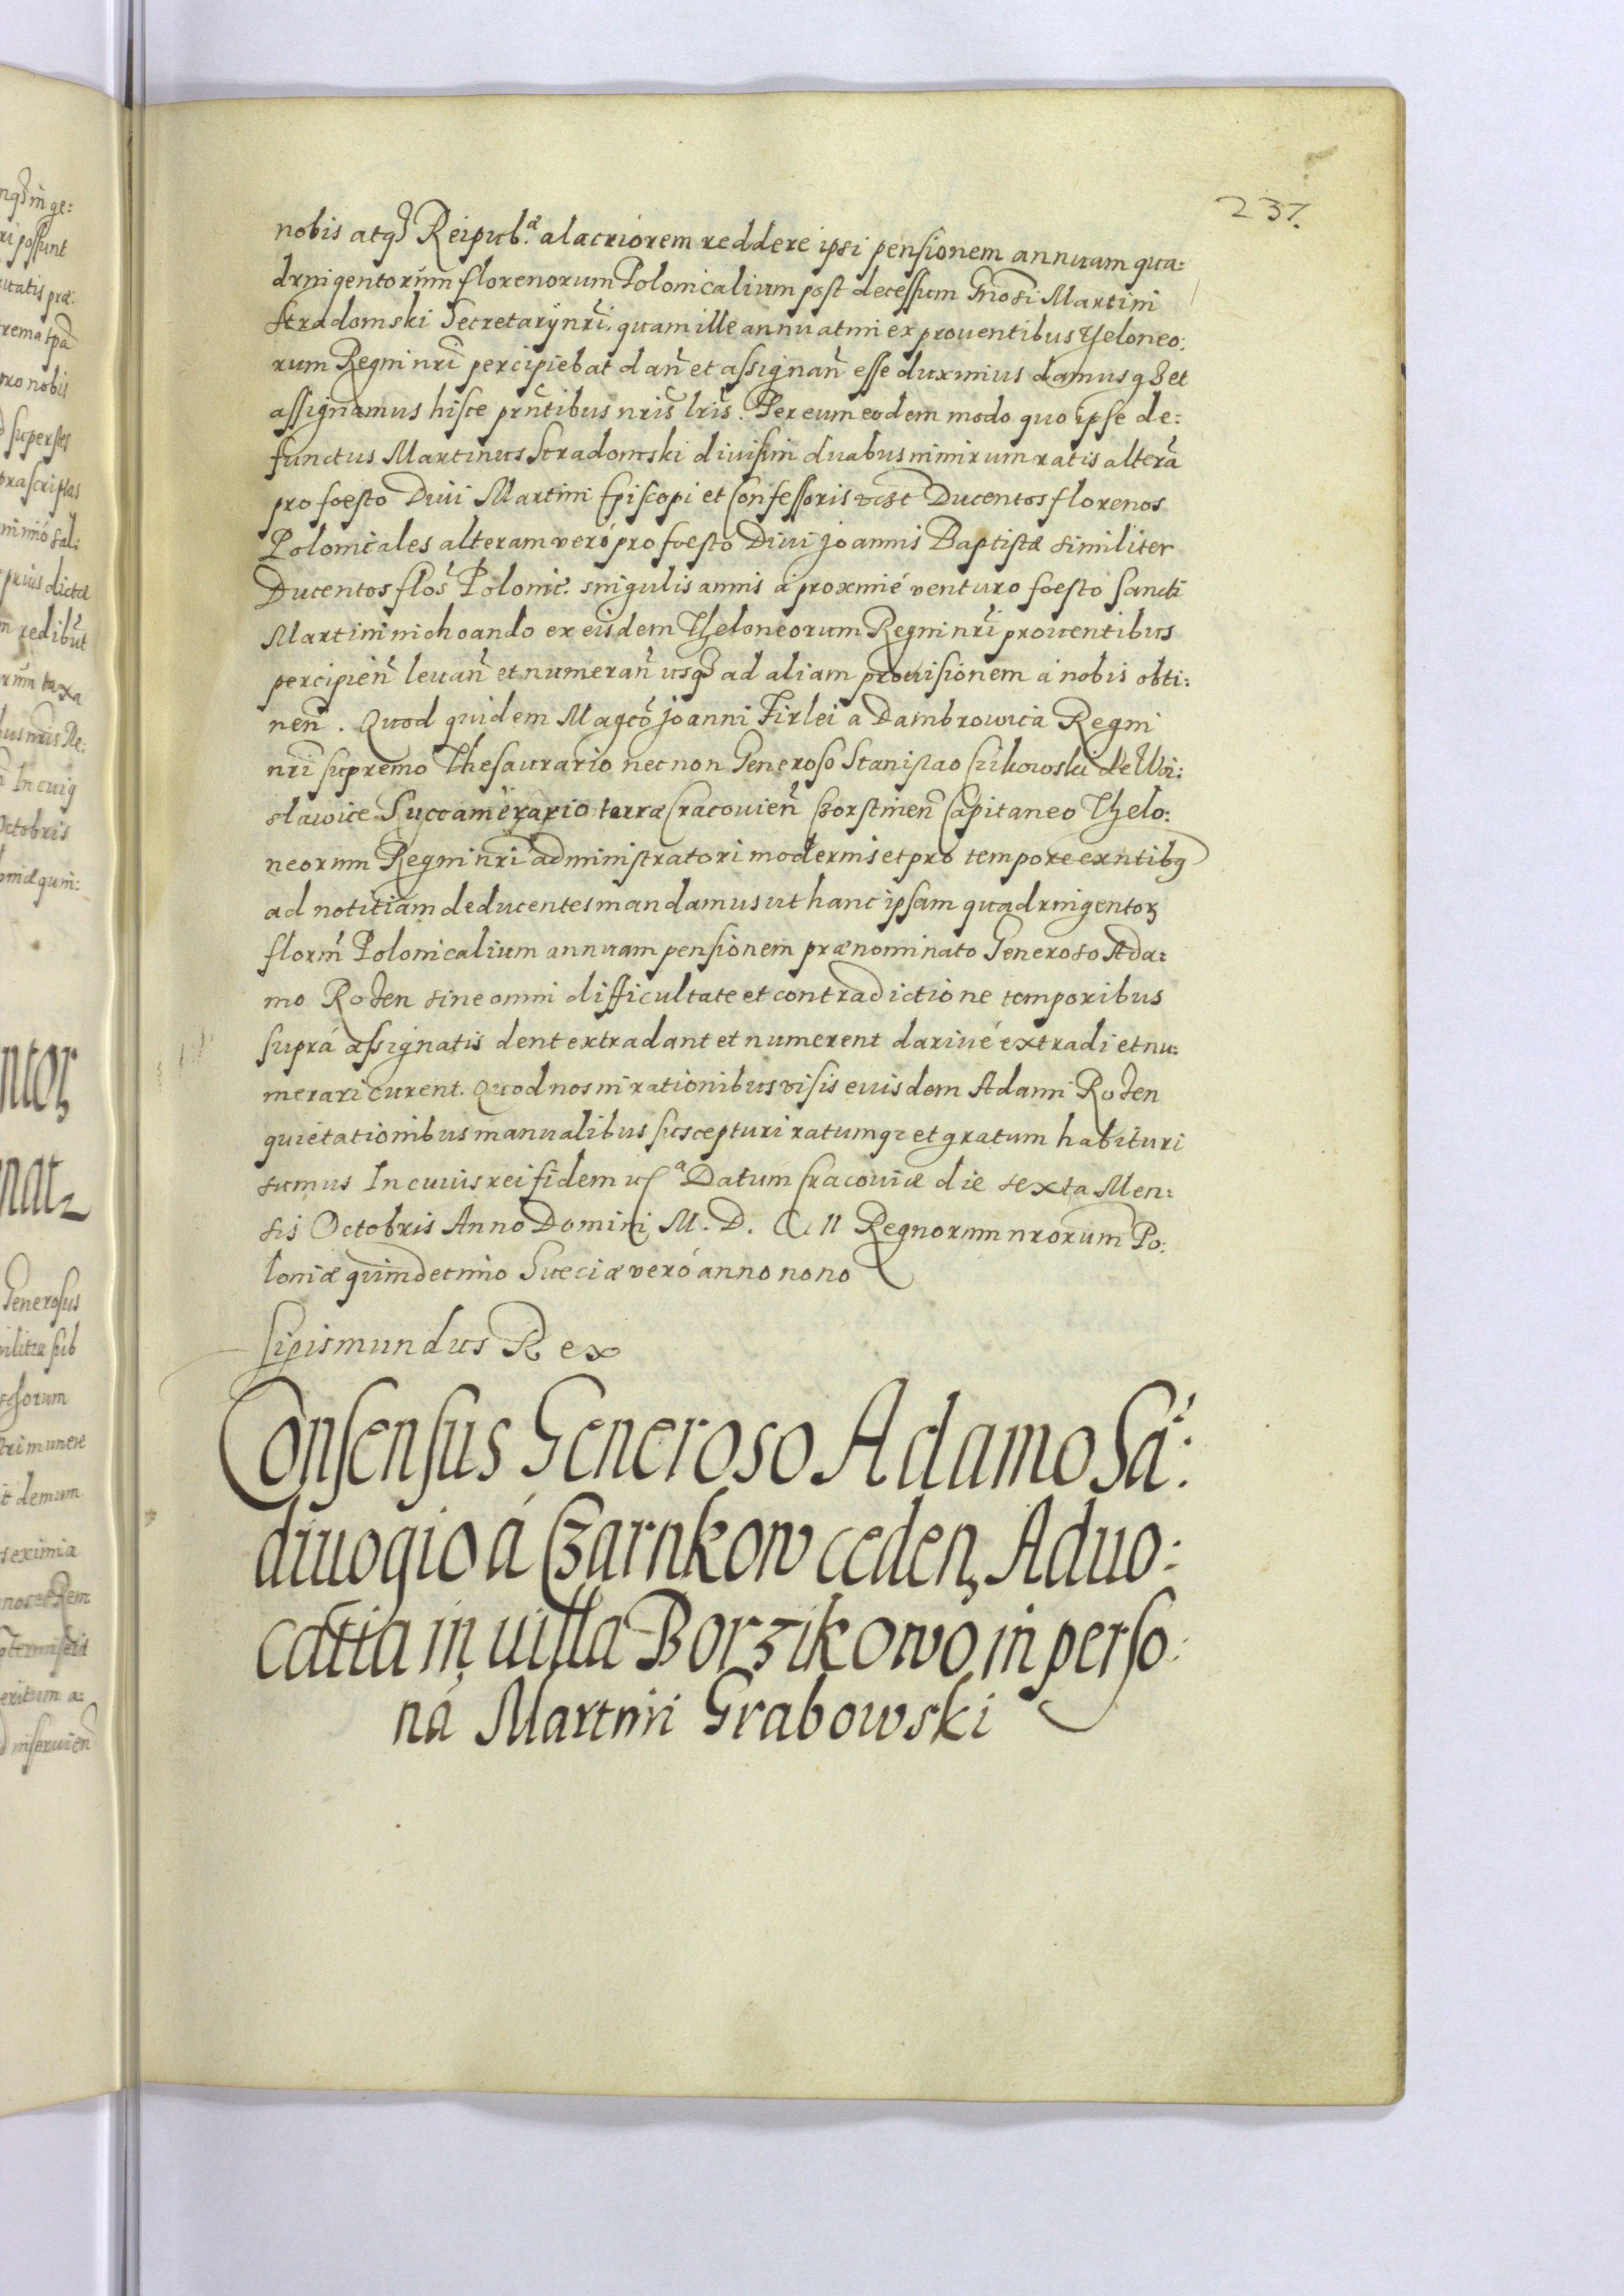 237.
nobis atq₃ Reipub.ᵃ alacriorem reddere ipsi pensionem annuam qua:
dringentorúm florenorum Polonicalium post decessum Gñosi Martini
Stradomski Secretarÿ nr̃i. quam ille annuatim ex prouentibus Theloneo:
rum Regni nr̃i percipiebat dañ et assignañ esse duximus damusq₃ et
assignamus hisce prñtibus nr̃is lr̃is. Per eum eodem modo quo ipse de:
functus Martinus Stradomski diuisim duabus nimirum ratis alterã
pro foesto Diui Martini Episcopi et Confessoris vizt Ducentos florenos
Polonicales alteram veró pro foesto Diui Joannis Baptistæ similiter
Ducentos flós Polonic̃. singulis annis á proximé venturo foesto Sancti
Martini inichoando ex eisdem Theloneorum Regni nr̃i prouentibus
percipieñ leuañ et numerañ usq₃ ad aliam prouisionem á nobis obti:
neñ. Quod quidem Magcõ Joanni Firlei a Dambrowica Regni
nr̃i supremo Thesaurario nec non Generoso Stanislao Cikowski de Woi:
slawice Succamerario terræ Cracovieñ Czorstineñ Capitaneo Thelo:
neorum Regni nr̃i administratori modernis et pro tempore exñtibꝯ
ad notitiam deducentes mandamus ut hanc ipsam quadringentoꝝ
florm̃ Polonicalium annuam pensionem prænominato Generoso Ada:
mo Roden sine omni difficultate et contradictione temporibus
suprá assignatis dent extradant et numerent dariué extradi et nu:
merari curent. Quod nos in rationibus visis euisdem Adami Roden
quietationibus manualibus suscepturi ratumq₃ et gratum habituri
sumus In cuius rei fidem ꝛcᵃ Datum Cracouiæ die sexta Men:
sis Octobris Anno Domini M. D. C II Regnorum nrorum Po:
loniæ quindecimo Sueciæ veró anno nono
Sigismundus Rex
Consensus Generoso Adamo Sá:
diuogio á Czarnkow cedeñ Aduo:
catia in uilla Borzikowo in perso:
ná Martini Grabowski